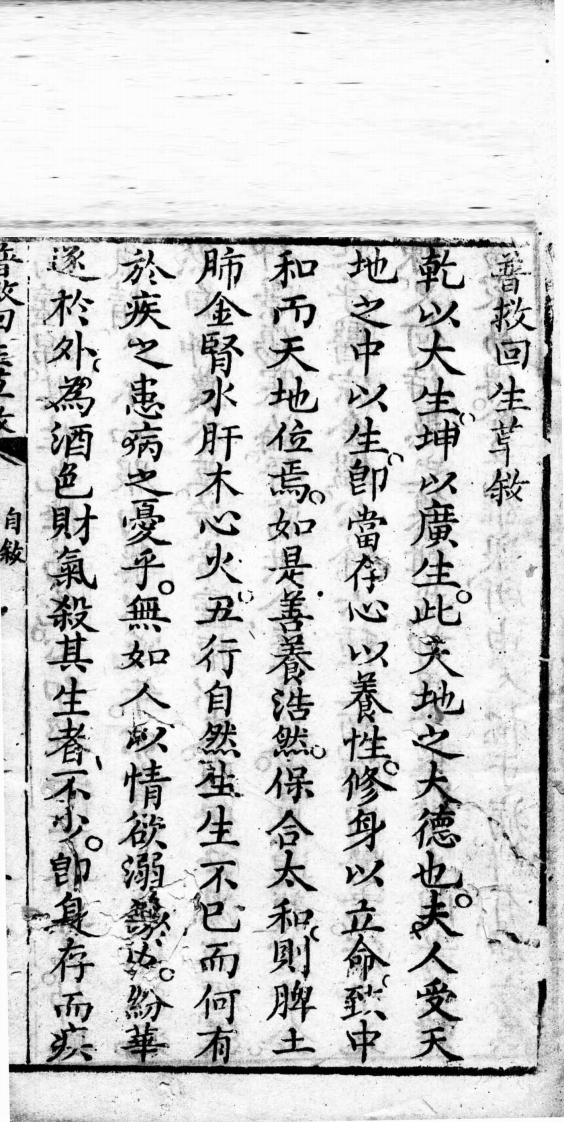 普救回生草敘
乾以大生坤以廣生此天地之大德也夫人受天
地之中以生卽當存心以養性修身以立命致中
和而天地位焉如是善養浩然保合太和則脾土
肺金腎水肝木心火五行自然生生不已而何有
於疾之患病之憂乎無如人以情欲溺於紛華
逐於外為酒色財氣殺其生者不少卽身存而疾
普救回生草敘
自敘